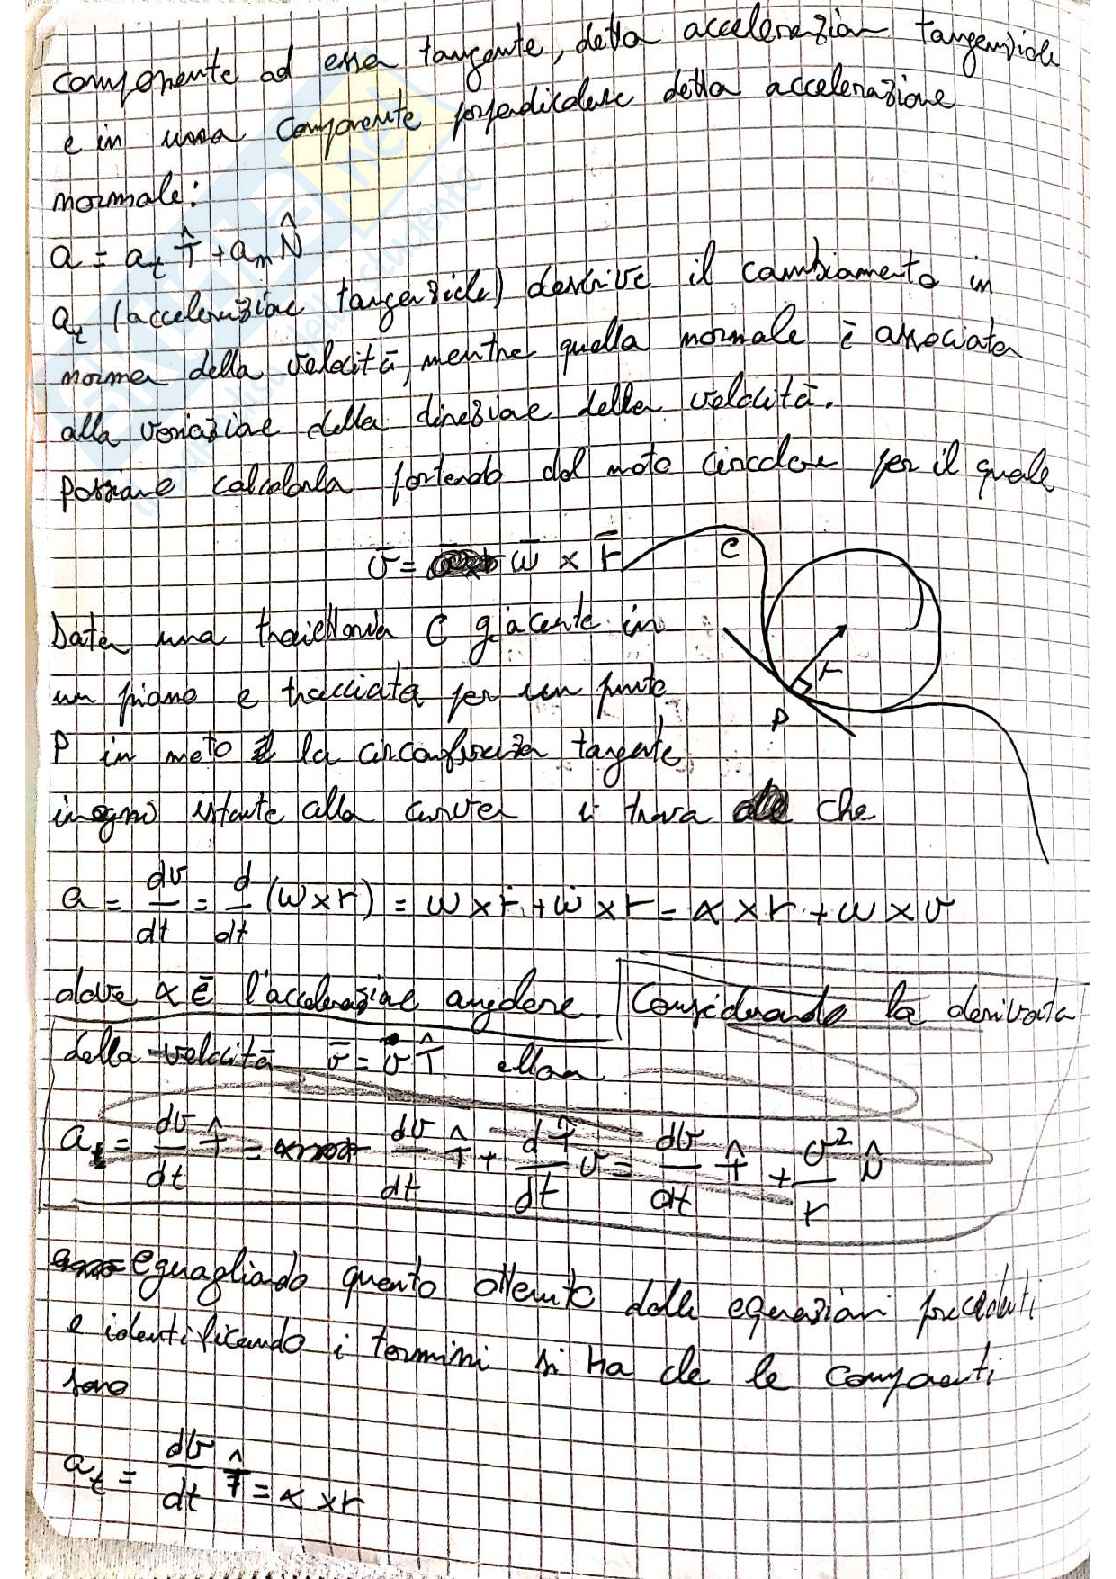 componente ad essa tangente, detta accelerazion tangenziale
e in una componente perpendicolare detta accelerazione
normale:
a = a_t T̂ + a_n N̂
a_t (accelerazione tangenziale) descrive il cambiamento in
norma della velocità, mentre quella normale è associata
alla variazione della direzione della velocità.
Possiamo calcolarla partendo dal moto circolare per il quale
v̄ = w̄ × r̄
C
Data una traiettoria C giacente in
un piano e tracciata per un punto
r
P
P in moto la circonferenza tangente
in ogni istante alla curva si trova che
a = dv/dt = d/dt (w × r) = w × ṙ + ẇ × r = α × r + w × v
dove α è l'accelerazione angolare. Considerando la derivata
della velocità v̄ = v T̂ allora
a_t = dv/dt T̂ = dv/dt T̂ + dT̂/dt v = dv/dt T̂ + v²/r N̂
eguagliando quanto ottenuto dalle equazioni precedenti
e identificando i termini si ha che le componenti
sono
a_t = dv/dt T̂ = α × r